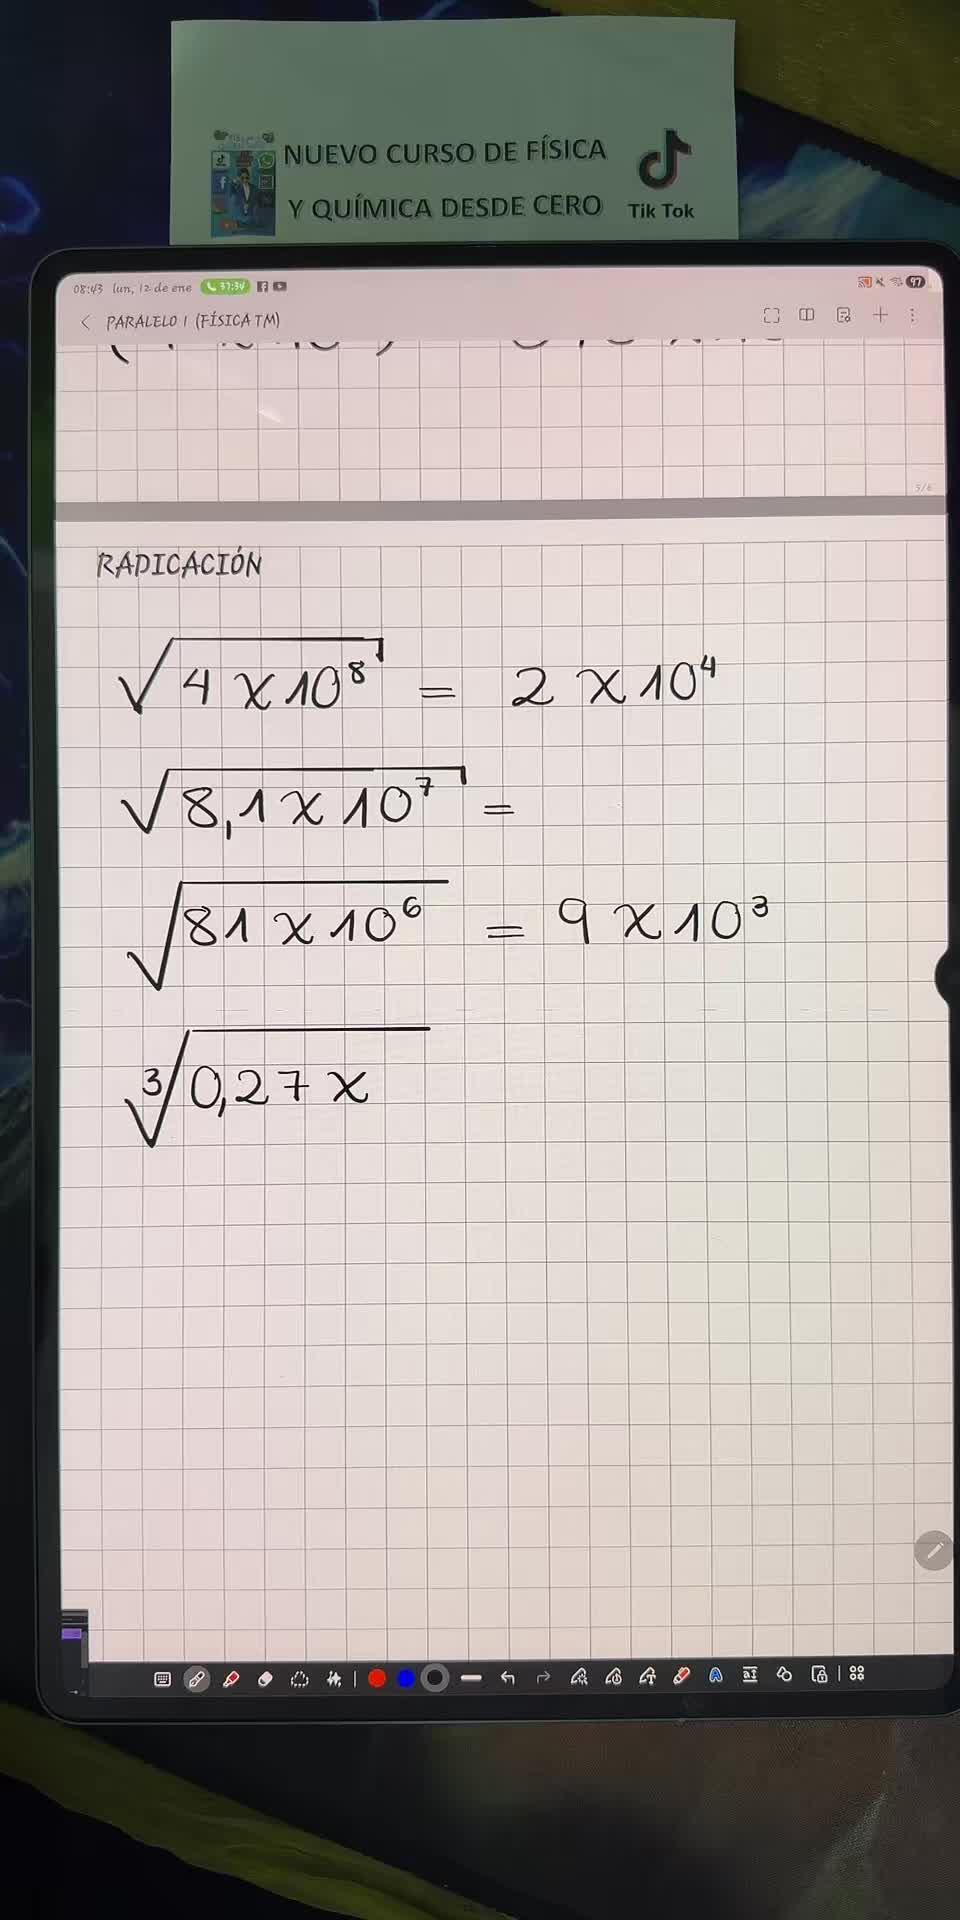 NUEVO CURSO DE FÍSICA
Y QUÍMICA DESDE CERO
Tik Tok
08:43 lun, 12 de ene 37:34 97
PARALELO 1 (FÍSICA TM)
5/6
RADICACIÓN
√4 x 10⁸ = 2 x 10⁴
√8,1 x 10⁷ =
√81 x 10⁶ = 9 x 10³
³√0,27 x